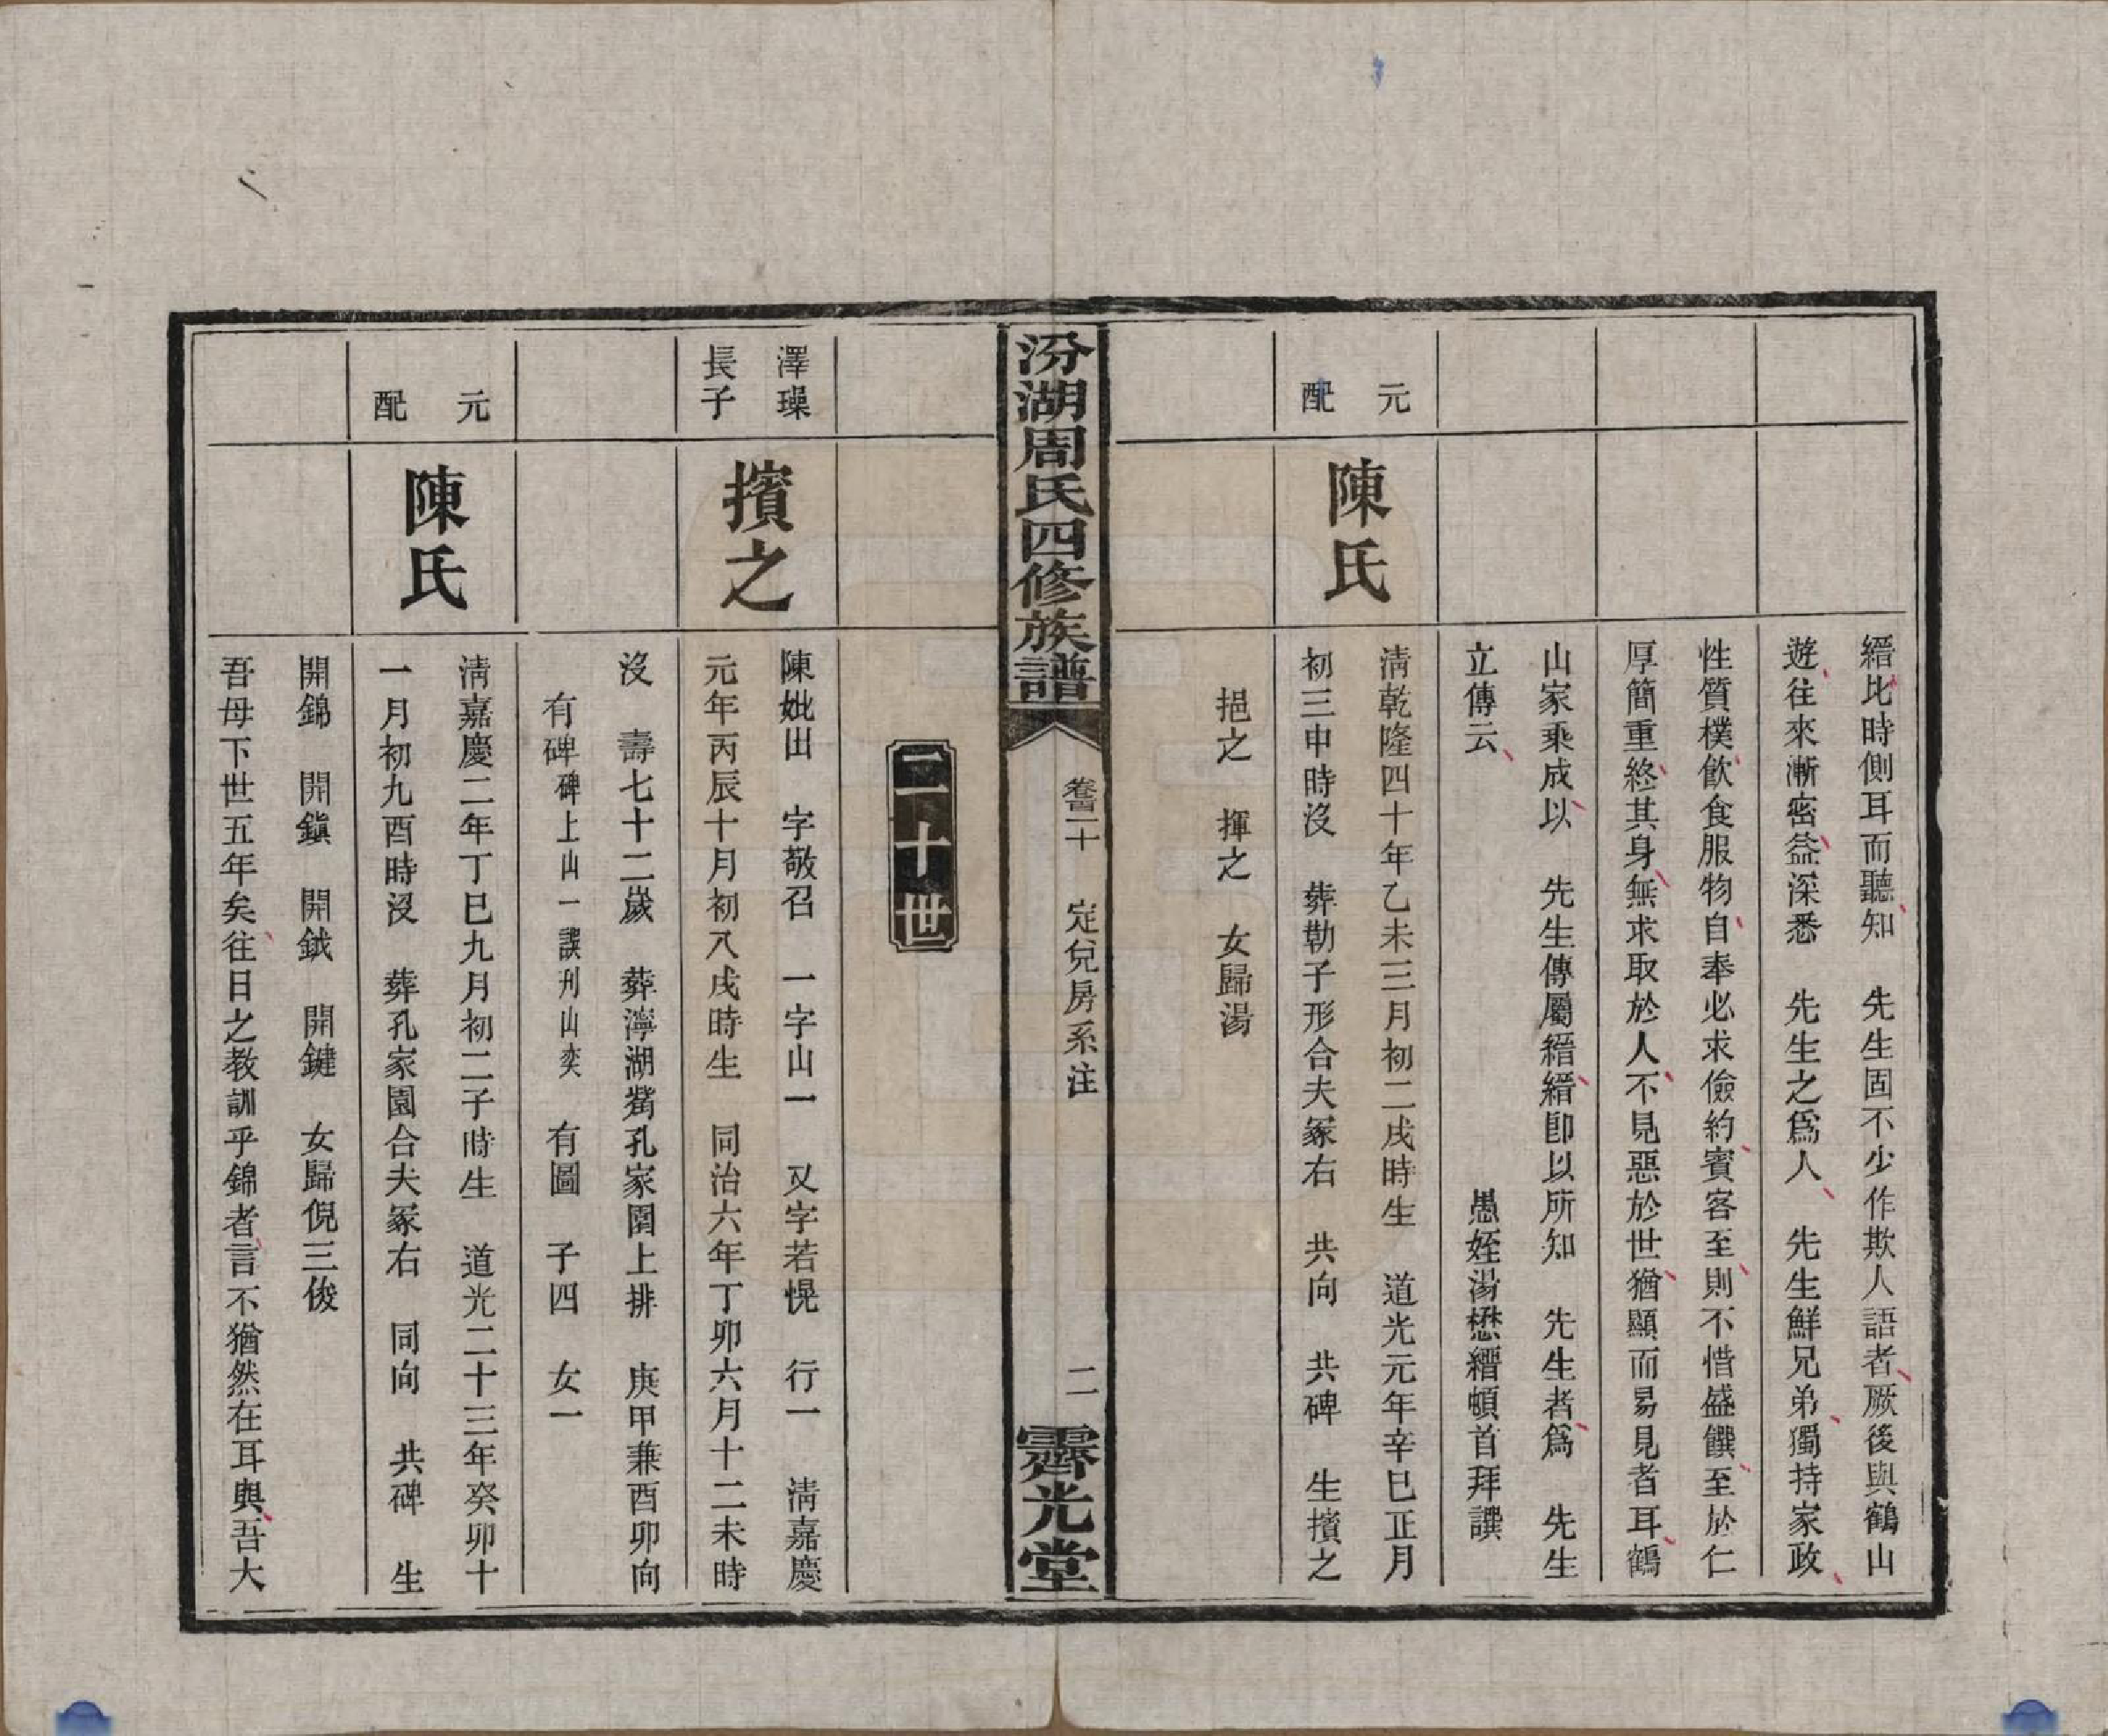 縉比時側耳而聽知　先生固不少作欺人語者厥後與鶴山
遊往來漸密益深悉　先生之爲人　先生鮮兄弟獨持家政
性質樸飮食服物自奉必求儉約賓客至則不惜盛饌至於仁
厚簡重終其身無求取於人不見惡於世猶顯而易見者耳鶴
山家乘成以　先生傳屬縉縉卽以所知　先生者爲　先生
立傳云　愚姪湯懋縉頓首拜譔
元配
陳氏
淸乾隆四十年乙未三月初二戌時生　道光元年辛巳正月
初三申時沒　葬勒子形合夫冢右　共向　共碑　生擯之
挹之　揮之　女歸湯
汾湖周氏四修族譜
卷二十　定兌房系注
二
霽光堂
二十世
澤璪
長子
擯之
陳妣出　字敬召　一字山一　又字若愰　行一　淸嘉慶
元年丙辰十月初八戌時生　同治六年丁卯六月十二未時
沒　壽七十二歲　葬濘湖觜孔家園上排　庚甲兼酉卯向
有碑碑上山一誤刋山奕　有圖　子四　女一
元配
陳氏
淸嘉慶二年丁巳九月初二子時生　道光二十三年癸卯十
一月初九酉時沒　葬孔家園合夫冢右　同向　共碑　生
開錦　開鎭　開鉞　開鍵　女歸倪三俊
吾母下世五年矣往日之教訓乎錦者言不猶然在耳與吾大